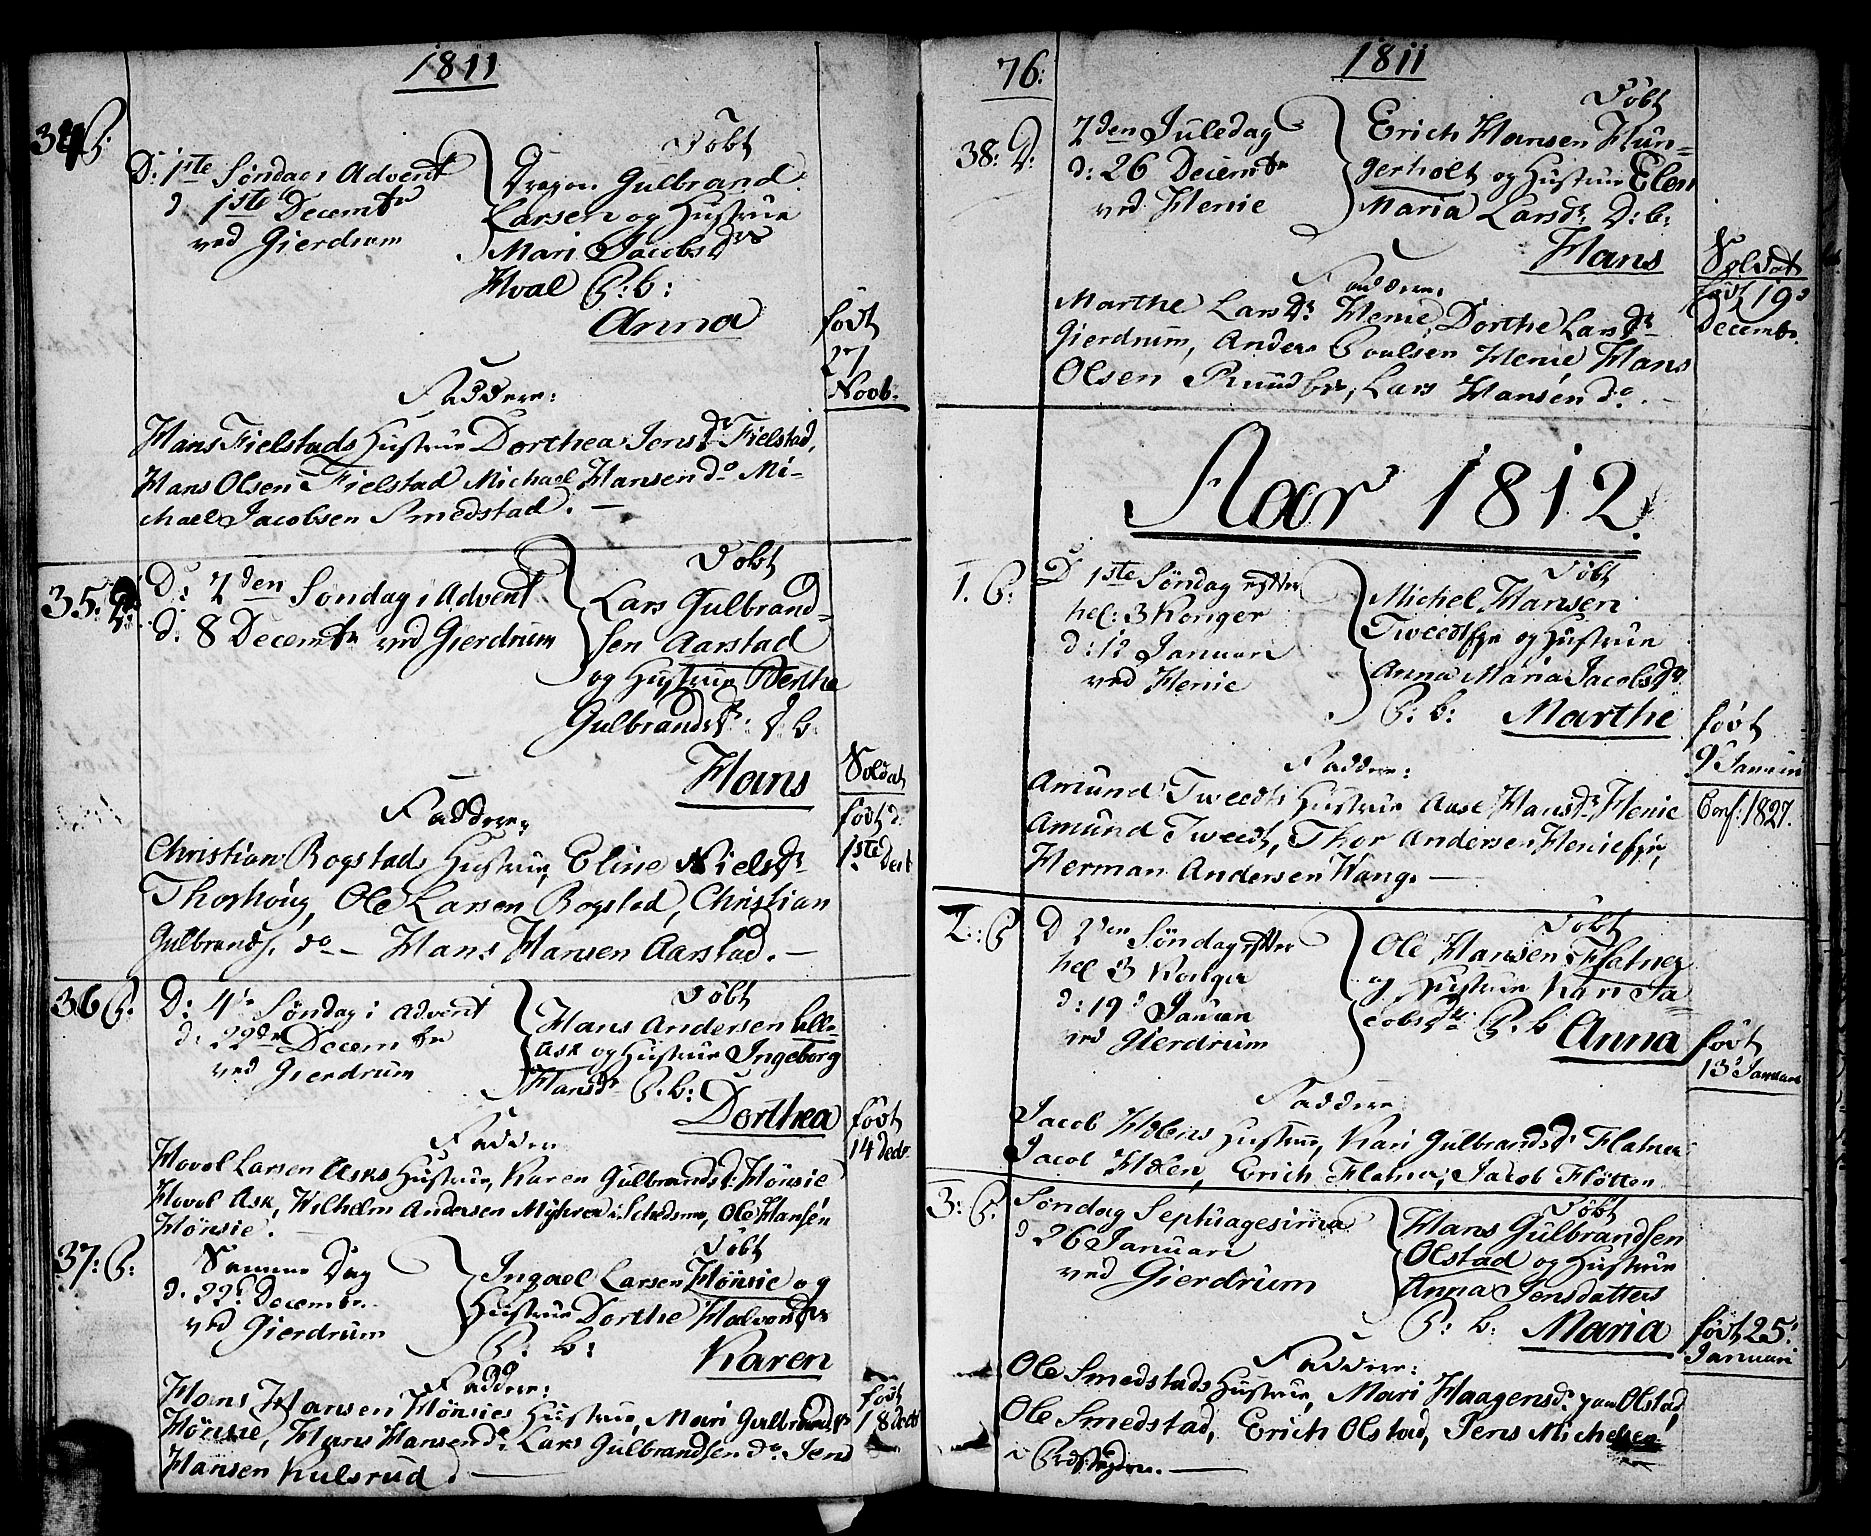 1811
34 P:
D: 1ste Søndag i Advent
d 1ste Decembr
ved Gierdrum
Døbt
Dragon Gulbrand
Larsen og Hustrue
Mari Jacobsdr
Hval P: b:
Anna
født
27
Novb.
Faddere:
Hans Fielstads Hustrue Dorthea Jensdr Fielstad,
Hans Olsen Fielstad Michael Hansen do Mi-
chael Jacobsen Smedstad. —
35. D:
D: 2den Søndag i Advent
d: 8 Decembr ved Gierdrum
Døbt
Lars Gulbrand-
sen Aarstad
og Hustrue Berthe
Gulbrandsdr: D b:
Hans
Soldat
født d:
1ste Decb
Faddere,
Christian Bogstads Hustrue, Eline Nielsdr
Thorhoug, Ole Larsen Bogstad, Christian
Gulbrands. do — Hans Hansen Aarstad. —
36 P:
D: 4de Søndag i Advent
d: 22de Decembr
ved Gierdrum
Døbt
Hans Andersen Lille-
Ask og Hustrue Ingeborg
Hansdr P: b:
Dorthea
født
14 Decbr
Faddere
Hovel Larsen Asks Hustrue, Karen Gulbrandsd: Hønsie
Hovel Ask, Wilhelm Andersen Myhrer i Schedsmo, Ole Hansen
Hønsie.
37: P:
Samme Dag
d. 22d Decembr.
ved Gierdrum
Døbt
Ingael Larsen Hønsie og
Hustrue Dorthe Halvorsdr
P: b:
Karen
født
18 Decb
Faddere:
Hans Hansen Hønsies Hustrue, Mari Gulbrandsdr
Hønsie, Hans Hansen do. Lars Gulbrandsen do. Jens
Hansen Kulsrud. —
76:
1811
38: D:
2den Juledag
d: 26 Decembr
ved Henie
Døbt
Erich Hansen Hun-
gerholt og Hustrue Elen
Maria Larsdr D: b:
Hans
Soldat
født 19d
Decembr.
Faddere.
Marthe Larsdr Henie, Dorthe Larsdr
Gierdrum, Anders Poulsen Henie Hans
Olsen Ruud, Lars Hansen do. —
Aar 1812.
1. P:
D 1ste Søndag efter
hel: 3 Konger
d: 12 Januari
ved Henie
Døbt
Michel Hansen
Tweedtejer og Hustrue
Anna Maria Jacobsdr
P: b: Marthe
født
9d Januari
Conf: 1827.
Faddere:
Amund Tweedts Hustrue Aase Hansdr Henie
Amund Tweedt, Thor Andersen Henieejer,
Herman Andersen Wang. —
2: P
D 2den Søndag efter
hel 3 Konger
d: 19d Januari
ved Gierdrum
Døbt
Ole Hansen Flatner
og Hustrue Kari Ja-
cobsdr P. b Anna
født
13d Januari
Faddere
Jacob Holens Hustrue, Kari Gulbrandsdr Flatner
Jacob Holen, Erich Flatner, Jacob Fløtten
3: P:
Søndag Septuagesima
d 26 Januari
ved Gierdrum
Døbt
Hans Gulbrandsen
Olstad og Hustrue
Anna Jensdatters
P: b: Maria
født 25d
Januari
Faddere:
Ole Smedstads Hustrue, Mari Haagensdr paa Olstad,
Ole Smedstad, Erich Olstad, Jens Michelsen
i Præstegrn. —